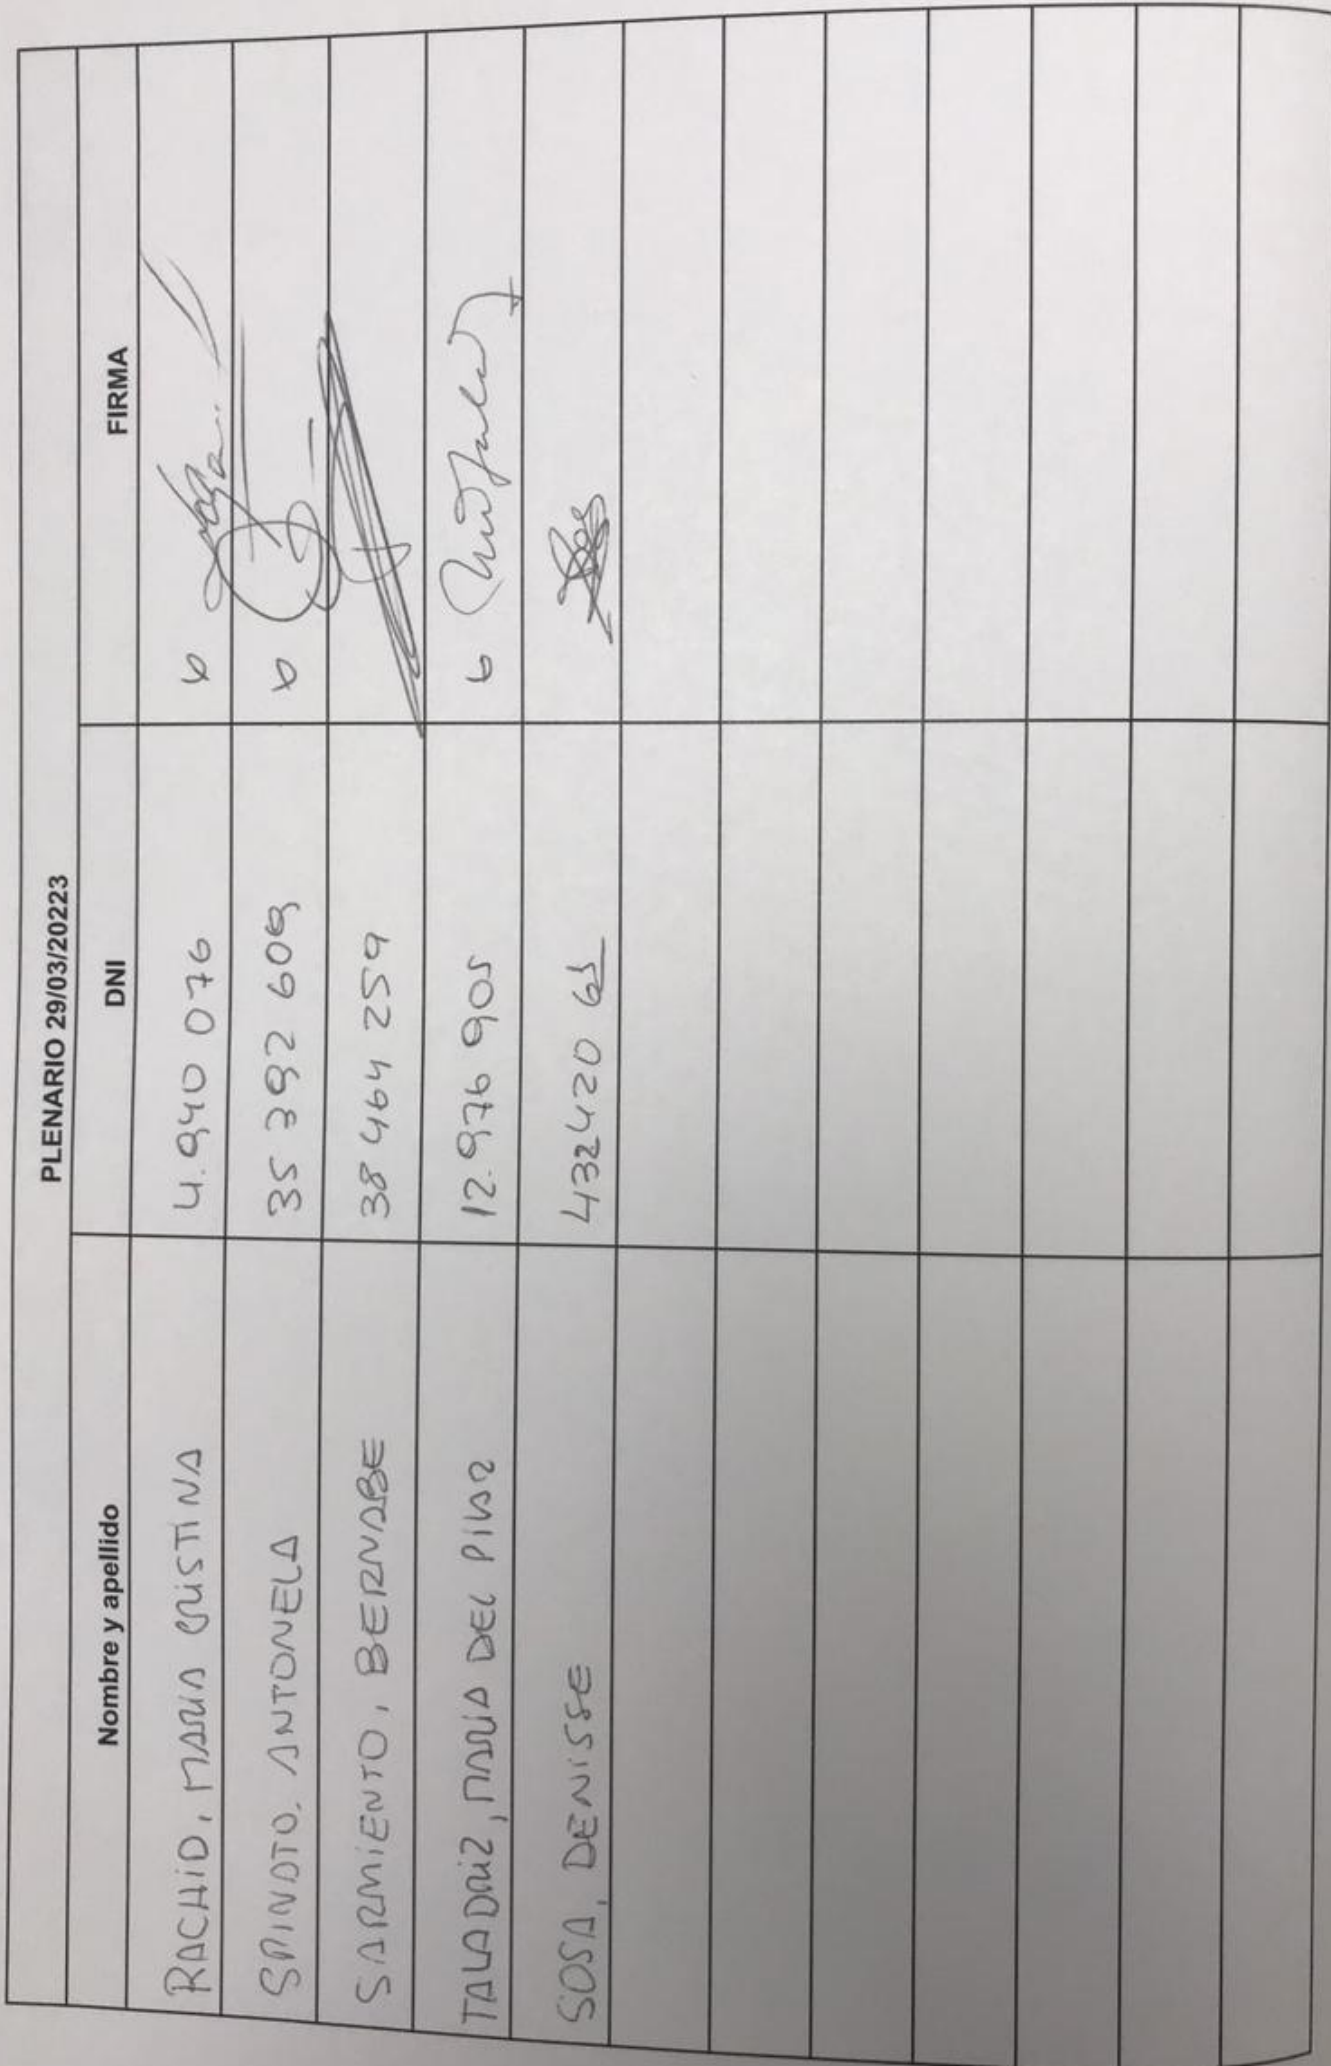 PLENARIO 29/03/20223
Nombre y apellido DNI FIRMA
RACHID, MARIA CRISTINA 4.940 076
SPINATO, ANTONELA 35 392 609
SARMIENTO, BERNABE 38 464 259
TALADRIZ, MARIA DEL PILAR 12.976 905
SOSA, DENISSE 432420 65